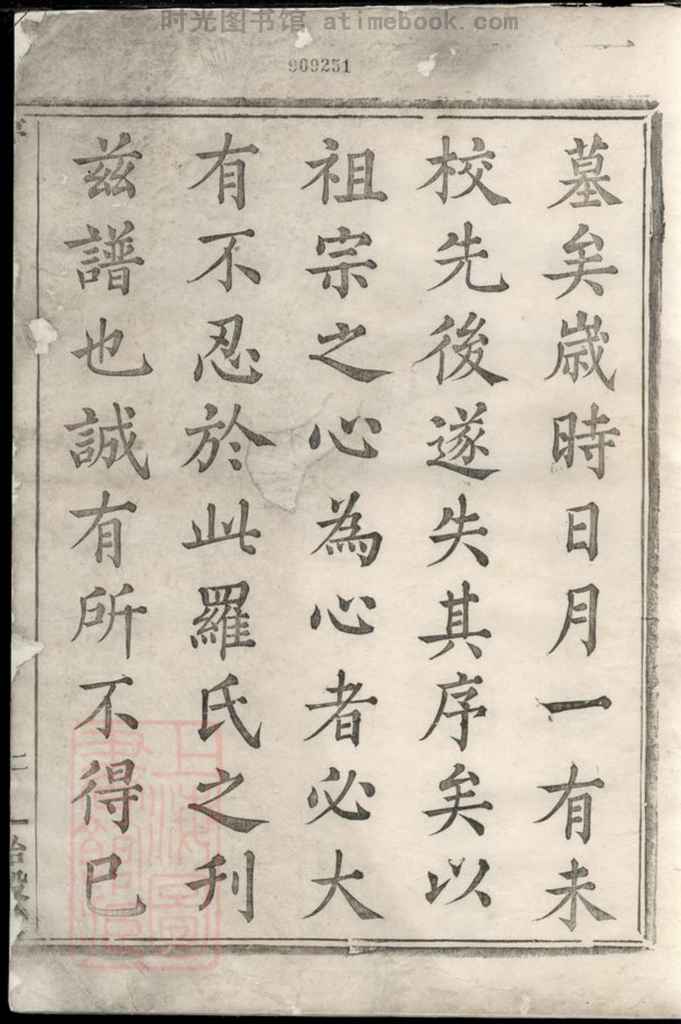 时光图书馆 atimebook.com
909251
墓矣歲時日月一有未
校先後遂失其序矣以
祖宗之心為心者必大
有不忍於此羅氏之刋
茲譜也誠有所不得已